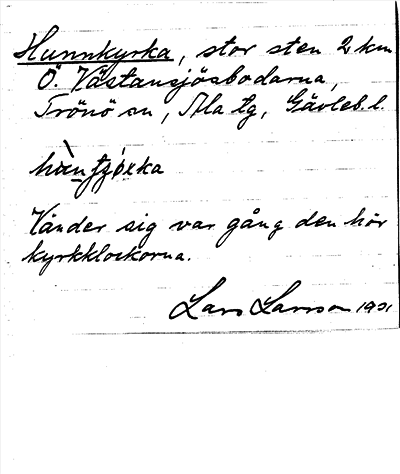 Hunnkyrka, stor sten 2 km
Ö. Västansjösbodarna,
Trönö sn, Ala tg, Gävleb. l.
Vänder sig var gång den hör
kyrkklockorna.
Lars Larsson 1921